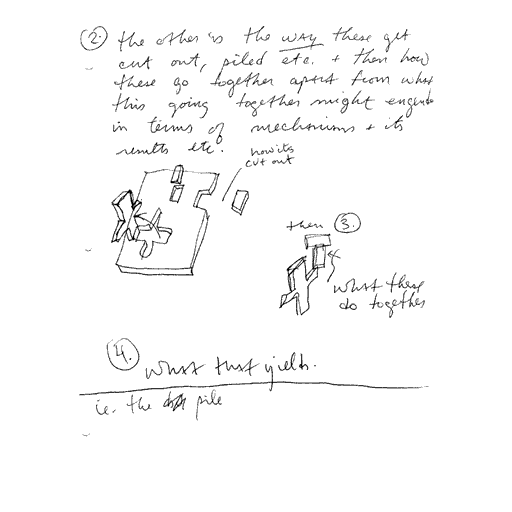 2. the other is the way these get
cut out, piled etc. + then how
these go together apart from what
this going together might
in terms of mechanisms + its
results etc.
how its
cut out
then 3.
what these
do together
4. what that yields.
ie. the pile